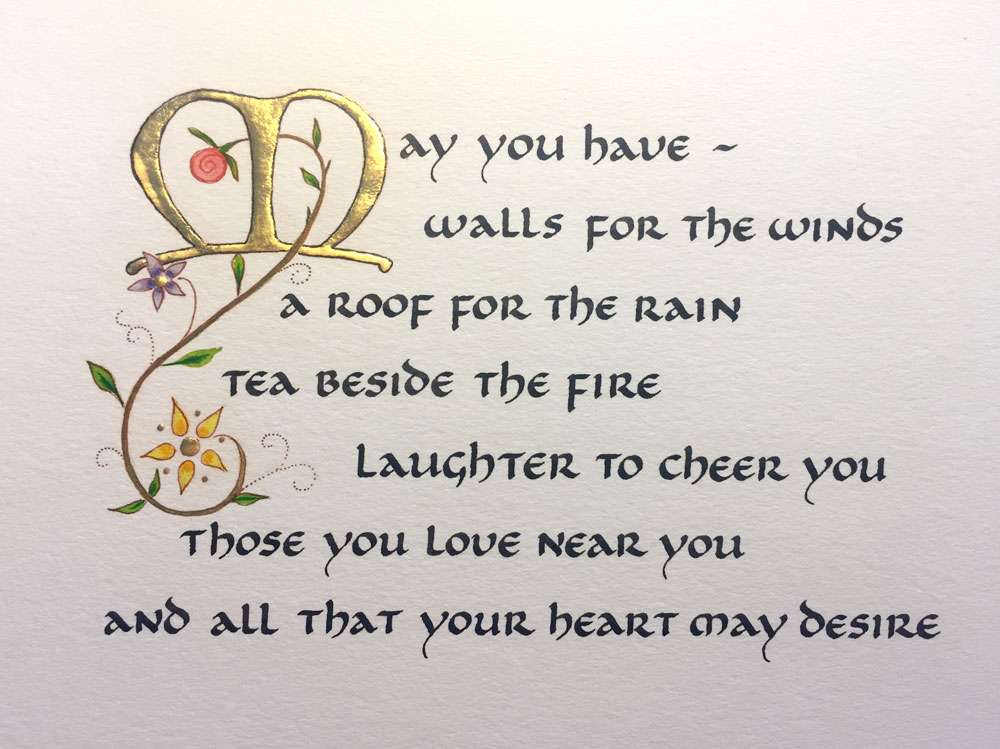 May you have ~
walls for the winds
a roof for the rain
tea beside the fire
Laughter to cheer you
Those you love near you
and all that your heart may desire